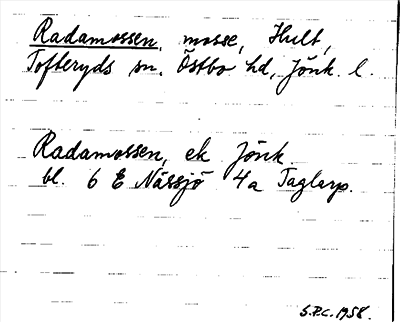 Radamossen, mosse, Hult,
Tofteryds sn. Östbo hd, Jönk. l.
Radamossen, ek Jönk.
bl. 6 E Nässjö 4a Taglarp.
S.P.C. 1958.